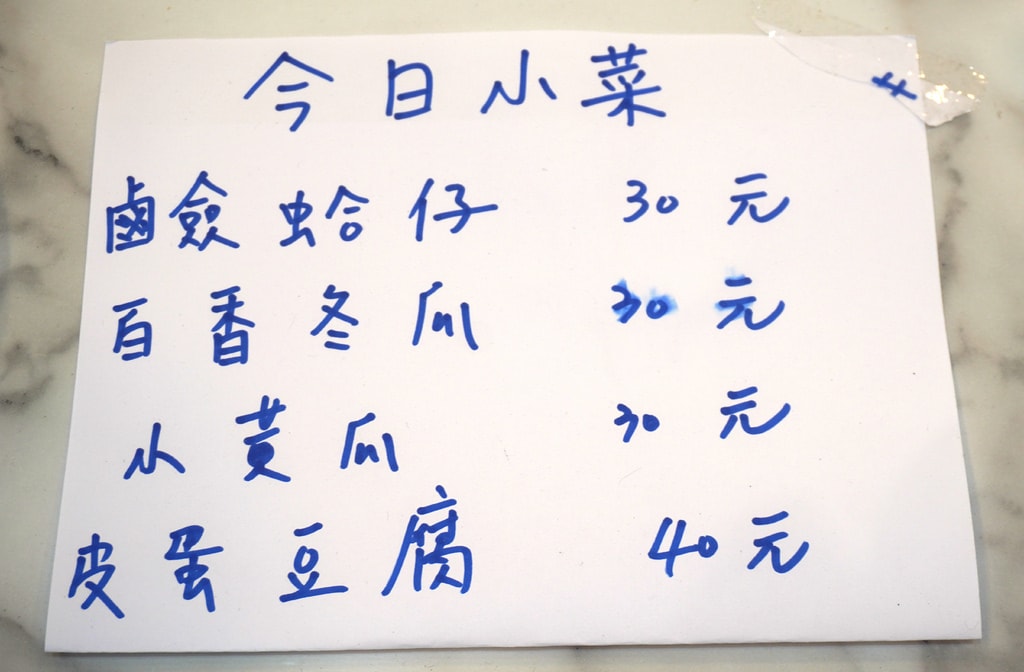 今日小菜
鹵僉蛤仔 30元
百香冬瓜 30元
小黃瓜 30元
皮蛋豆腐 40元